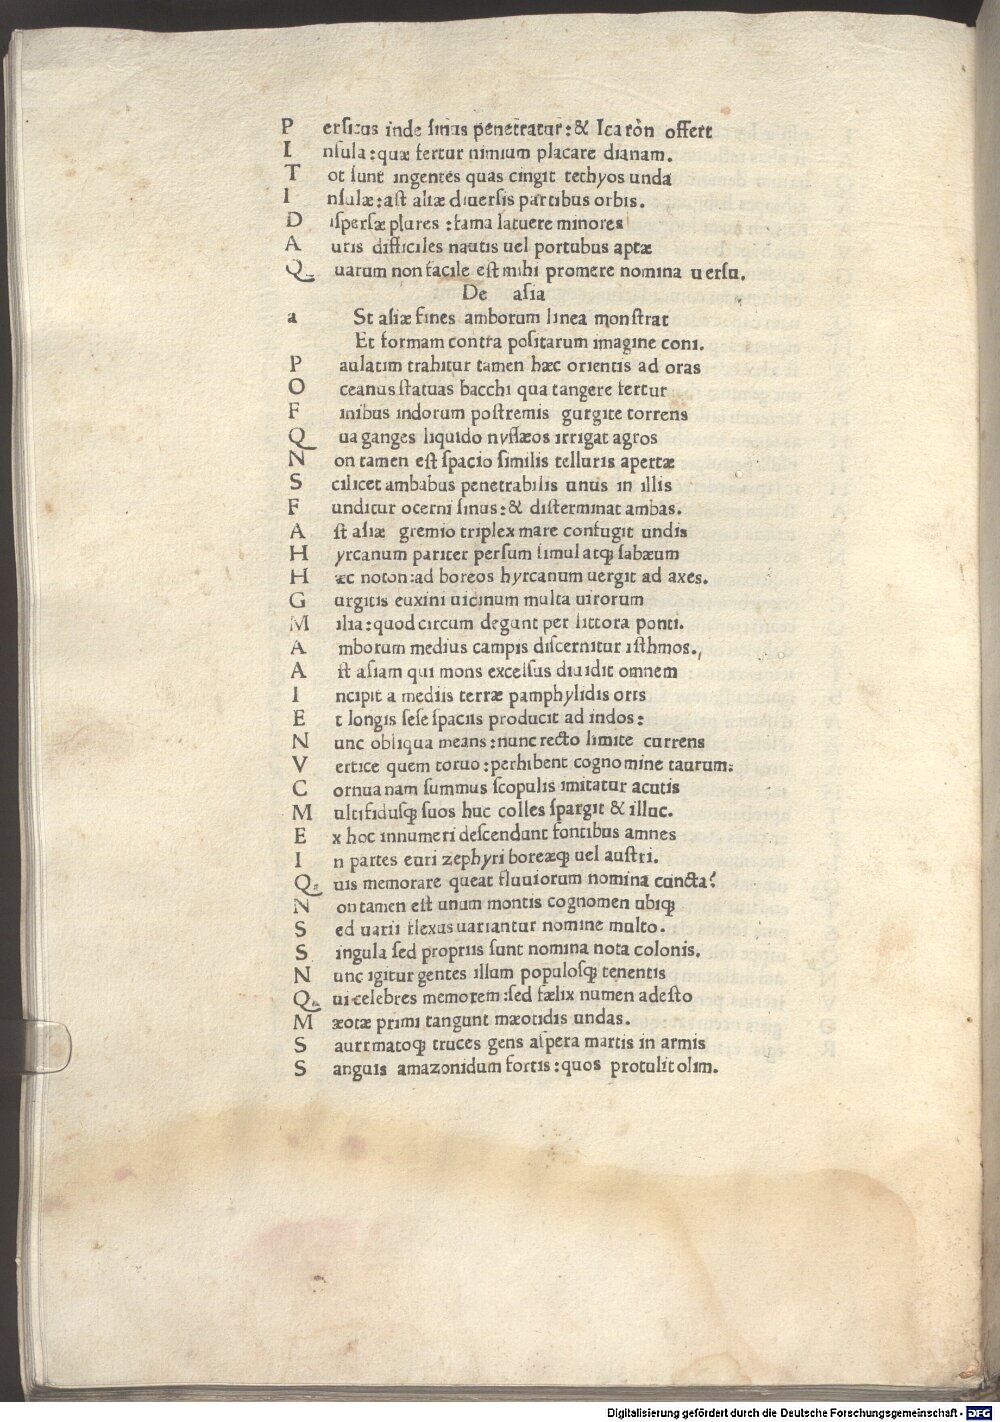 P ersicus inde sinus penetratur:& Icaròn offert
I nsula:quæ fertur nimium placare dianam.
T ot sunt ingentes quas cingit tethyos unda
I nsulæ:ast aliæ diuersis partibus orbis.
D ispersæ plures :fama latuere minores
A utis difficiles nautis uel portubus aptæ
Q uarum non facile est mihi promere nomina uersu.
De asia
a St asiæ fines amborum linea monstrat
Et formam contra positarum imagine coni.
P aulatim trahitur tamen hæc orientis ad oras
O ceanus statuas bacchi qua tangere fertur
F inibus indorum postremis gurgite torrens
Q ua ganges liquido nysæos irrigat agros
N on tamen est spacio similis telluris apertæ
S cilicet ambabus penetrabilis unus in illis
F unditur ocerni sinus:& disterminat ambas.
A st asiæ gremio triplex mare confugit undis
H yrcanum pariter persum simul atqꝫ sabæum
H æc noton:ad boreos hyrcanum uergit ad axes.
G urgitis euxini uicinum multa uirorum
M ilia:quod circum degunt per littora ponti.
A mborum medius campis discernitur isthmos.
A st asiam qui mons excelsus diuidit omnem
I ncipit a mediis terræ pamphylidis oris
E t longis sese spaciis producit ad indos:
N unc obliqua means:nunc recto limite currens
V ertice quem toruo:perhibent cognomine taurum:
C ornua nam summus scopulis imitatur acutis
M ultifidusqꝫ suos huc colles spargit & illuc.
E x hoc innumeri descendunt fontibus amnes
I n partes euri zephyri boreæqꝫ uel austri.
Q uis memorare queat fluuiorum nomina cuncta?
N on tamen est unum montis cognomen ubiqꝫ
S ed uarii flexus uariantur nomine multo.
S ingula sed propriis sunt nomina nota colonis.
N unc igitur gentes illum populosqꝫ tenentis
Q ui celebres memorem:sed fælix numen adesto
M æotæ primi tangunt mæotidis undas.
S aurrmatoqꝫ truces gens aspera martis in armis
S anguis amazonidum fortis:quos protulit olim.
Digitalisierung gefördert durch die Deutsche Forschungsgemeinschaft - DFG